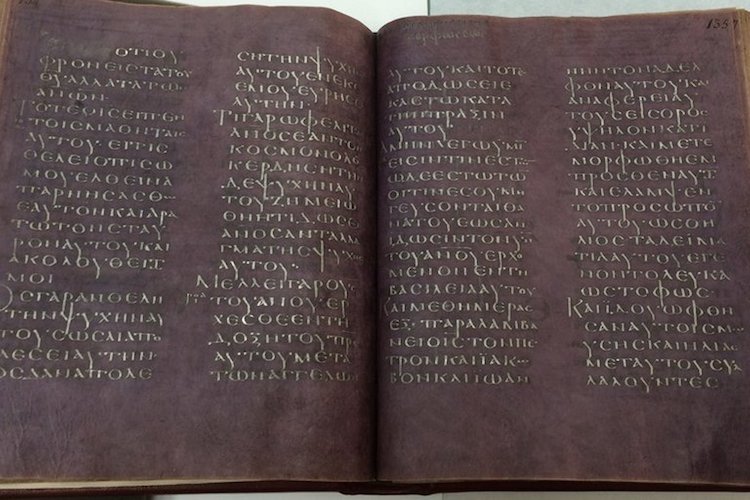 ΟΤΙΟΥ
ΦΡΟΝΕΙϹΤΑΤΟΥ
ΘΥΑΛΛΑΤΑΤΩ
ΑΝΩΝ·
ΤΟΤΕΟΙϹΕΙΠΕΝ
ΤΟΙϹΜΑΘΗΤΑΙϹ
ΑΥΤΟΥ·ΕΙΤΙϹ
ΘΕΛΕΙΟΠΙϹΩ
ΜΟΥΕΛΘΕΙΝΑ
ΠΑΡΝΗϹΑϹΘΩ
ΕΑΥΤΟΝΚΑΙΑΡΑ
ΤΩΤΟΝϹΤΑΥ
ΡΟΝΑΥΤΟΥΚΑΙ
ΑΚΟΛΟΥΘΕΙΤΩ
ΜΟΙ
ΟϹΓΑΡΑΝΘΕΛΗ
ΤΗΝΨΥΧΗΝΑΥ
ΤΟΥϹΩϹΑΙΑΠΟ
ΛΕϹΕΙΑΥΤΗΝ
ΟϹΔΑΝΑΠΟΛΕ
ϹΗΤΗΝΨΥΧΗΝ
ΑΥΤΟΥΕΝΕΚΕΝ
ΕΜΟΥΕΥΡΗϹΕΙ
ΑΥΤΗΝ·
ΤΙΓΑΡΩΦΕΛΕΙΤΑΙ
ΑΝΟϹΕΑΝΤΟΝ
ΚΟϹΜΟΝΟΛΟΝ
ΚΕΡΔΗϹΗΤΗΝ
ΔΕΨΥΧΗΝΑΥ
ΤΟΥΖΗΜΙΩ
ΘΗΗΤΙΔΩϹΕΙ
ΑΝΟϹΑΝΤΑΛΛΑ
ΓΜΑΤΗϹΨΥΧΗϹ
ΑΥΤΟΥ·
ΜΕΛΛΕΙΓΑΡΟΥϹ
ΤΟΥΑΝΟΥΕΡ
ΧΕϹΘΕΕΝΤΗ
ΔΟΞΗΤΟΥΠΡϹ
ΑΥΤΟΥΜΕΤΑ
ΤΩΝΑΓΓΕΛΩΝ
1357
ΑΥΤΟΥΚΑΙΤΟΤΕ
ΑΠΟΔΩϹΕΙΕ
ΚΑϹΤΩΚΑΤΑ
ΤΗΝΠΡΑΞΙΝ
ΑΥΤΟΥ
ΑΜΗΝΛΕΓΩΥΜΙ
ΕΙϹΙΝΤΙΝΕϹΤ
ΩΔΕΕϹΤΩΤΩ
ΟΙΤΙΝΕϹΟΥΜΗ
ΓΕΥϹΟΝΤΑΙΘΑ
ΝΑΤΟΥΕΩϹΑΝ
ΙΔΩϹΙΝΤΟΝΥΝ
ΤΟΥΑΝΟΥΕΡΧΟ
ΜΕΝΟΝΕΝΤΗ
ΒΑϹΙΛΕΙΑΑΥΤΟΥ
ΚΑΙΜΕΘΗΜΕΡΑϹ
ΕΞ·ΠΑΡΑΛΑΜΒΑ
ΝΕΙΟΙϹΤΟΝΠΕ
ΤΡΟΝΚΑΙΙΑΚΩ
ΒΟΝΚΑΙΙΩΑΝ
ΝΗΝΤΟΝΑΔΕΛ
ΦΟΝΑΥΤΟΥΚΑΙ
ΑΝΑΦΕΡΕΙΑΥ
ΤΟΥϹΕΙϹΟΡΟϹ
ΥΨΗΛΟΝΚΑΤΙ
ΔΙΑΝ·ΚΑΙΜΕΤΕ
ΜΟΡΦΩΘΗΕΜ
ΠΡΟϹΘΕΝΑΥΤ
ΚΑΙΕΛΑΜΨΕΝ
ΤΟΠΡΟϹΩΠΟ
ΑΥΤΟΥΩϹΟΗ
ΛΙΟϹΤΑΔΕΙΜΑ
ΤΙΑΑΥΤΟΥΕΓΕ
ΝΟΝΤΟΛΕΥΚΑ
ΩϹΤΟΦΩϹ·
ΚΑΙΙΔΟΥΩΦΘΗ
ϹΑΝΑΥΤΟΙϹΜΩ
ΥϹΗϹΚΑΙΗΛΙΑϹ
ΜΕΤΑΥΤΟΥϹΥΛ
ΛΑΛΟΥΝΤΕϹ